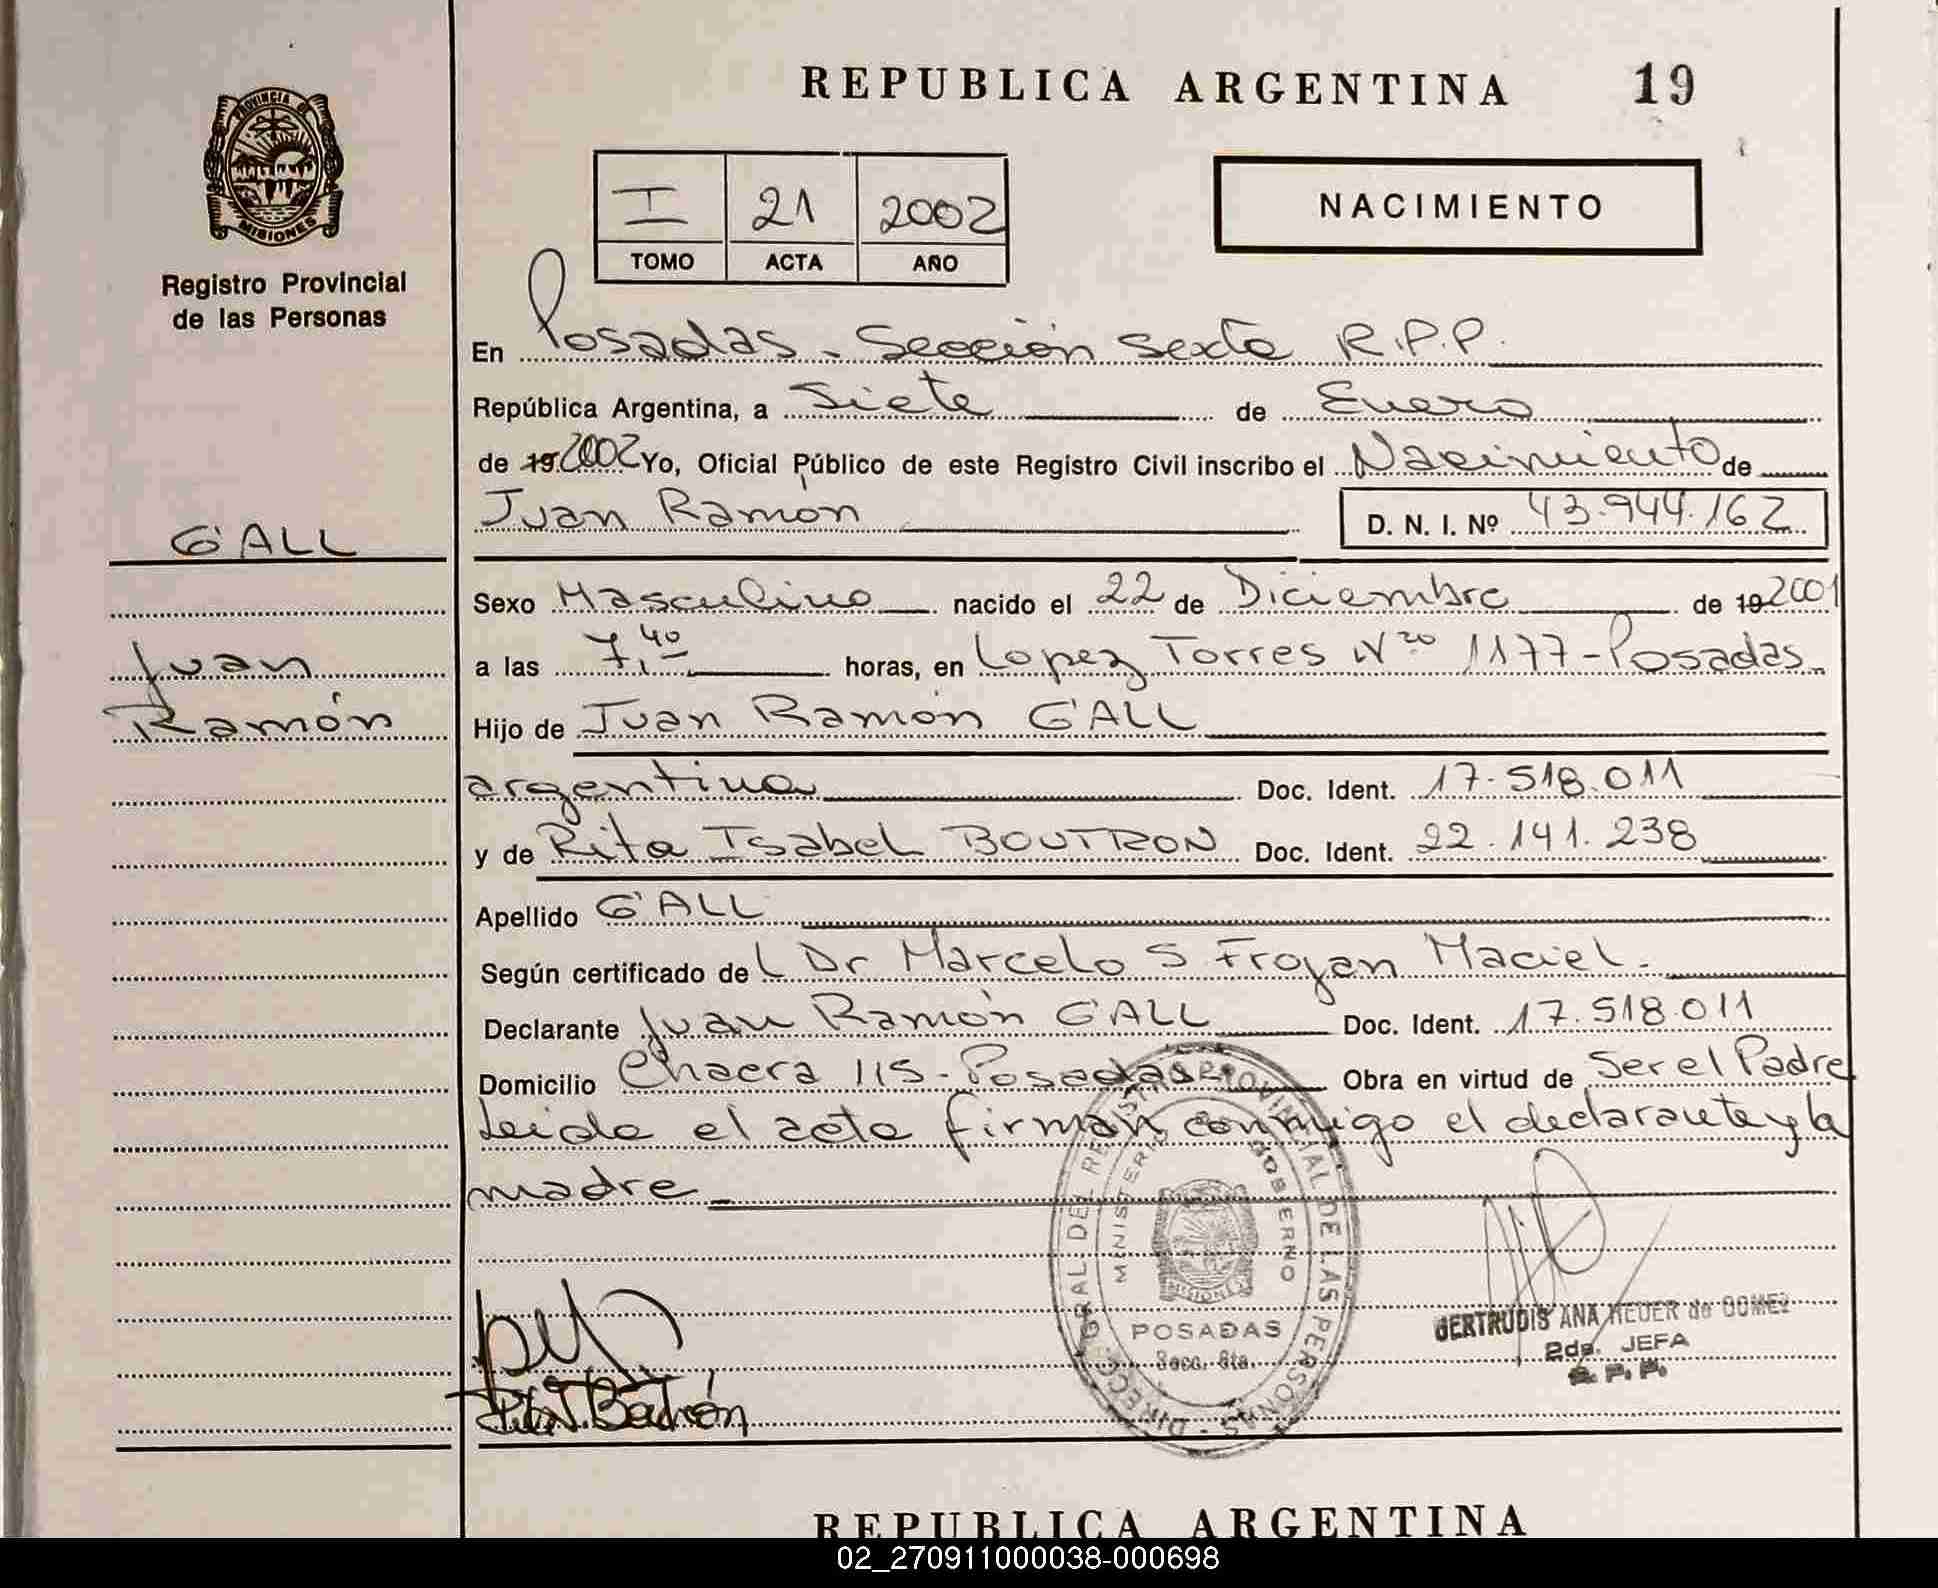 REPUBLICA ARGENTINA 19
PROVINCIA DE
MISIONES
Registro Provincial
de las Personas
I 21 2002
TOMO ACTA AÑO
NACIMIENTO
En Posadas - Sección Sexta R.P.P.
República Argentina, a Siete de Enero
de 19 2002 Yo, Oficial Público de este Registro Civil inscribo el Nacimiento de
Juan Ramón D. N. I. Nº 43.944.162
G'ALL
Juan
Ramón
Sexo Masculino nacido el 22 de Diciembre de 19 2001
a las 7,40 horas, en Lopez Torres Nro 1177 - Posadas
Hijo de Juan Ramón G'ALL
argentina Doc. Ident. 17.518.011
y de Rita Isabel BOUTRON Doc. Ident. 22.141.238
Apellido G'ALL
Según certificado de Dr Marcelo S Froyan Maciel.
Declarante Juan Ramón G'ALL Doc. Ident. 17.518.011
Domicilio Chacra 115 - Posadas Obra en virtud de Ser el Padre
Leida el acta firman conmigo el declarante y la
madre
DIRECC. GRAL DEL REGISTRO PROVINCIAL DE LAS PERSONAS
MINISTERIO GOBIERNO
MISIONES
POSADAS
Secc. 6ta.
GERTRUDIS ANA HEUER de GOMEZ
2da. JEFA
R. P. P.
REPUBLICA ARGENTINA
02_270911000038-000698